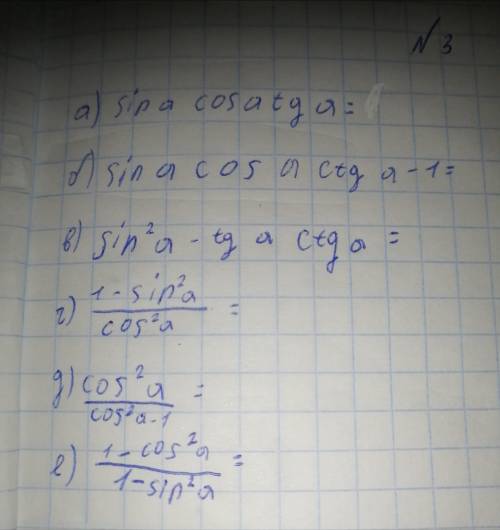 № 3
а) sin a cos a tg a =
б) sin a cos a ctg a - 1 =
в) sin²a - tg a ctg a =
г) 1 - sin²a / cos²a =
д) cos²a / cos²a - 1 =
е) 1 - cos²a / 1 - sin²a =